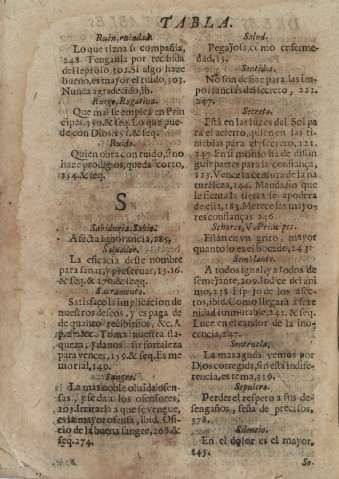 TABLA.
Ruin, ruindad.
Lo que tizna su compañia,
248. Tengasla por recibida
del leproso, 302. Si algo haze
bueno, es mayor el ruido, 303.
Nunca agradecido, ib.
Ruego, Rogativa.
Que mal se emplea en Prin
cipes, 350. & seq. Lo que pue-
de con Dios, 351. & seq.
Ruido.
Quien obra con ruido, si no
haze prodigios, queda corto,
254. & seq.
S
Sabiduria, Sabio.
Afecta ignorancia, 285.
Salvador.
La eficacia deste nombre
para sanar, y preservar, 15. 16.
& seq. & 476. & seqq.
Sacramento.
Satisface la implicacion de
nuestros deseos, y es paga de
de quanto recibimos, &c. A
Toma nuestra fla-
queza, y danos su fortaleza
para vencer, 139. & seq. Es me
morial, 149.
Sangre.
La mas noble olvida ofen-
sas, y se da a los ofensores,
203. Irritarlo a que se vengue,
es la mayor ofensa, ibid. Ofi-
cio de la buena sangre, 208. &
seq. 274.
Salud.
Pegajosa, como enferme-
dad, 15.
Sentidos.
No son de fiar para las im
portancias del secreto, 222.
247.
Secreto.
Està en las luces del Sol pa
ra el acierto, quien en las ti-
nieblas para el secreto, 121.
247. En si mismo ha de distin
guir partes para la confiança,
123. Vence la censura de la na
turaleza, 144. Mandarlo que
le sienta la tierra se apodera
de ella, 183. Merece las mayo-
res confianças 246
Señores, V. Principes.
Fian en vn grito, mayor
quanto lo en lo bocate, 243.
Semblante.
A todos igual, y a todos de
semejante, 209. Indice del ani
mo, 218. Espejo de los afec-
tos, ibid. Como llegarà a sere
nidad inmutable, 241. & seq.
Luce en el candor de la ino-
cencia, 247.
Sentencia.
La mas aguda vemos por
Dios corregida, si no està indife-
rencia, es tema, 319.
Sepulcro.
Perder el respeto a sus de-
sengaños, seña de precisos,
378.
Silencio.
En el dolor es el mayor,
245.
So-